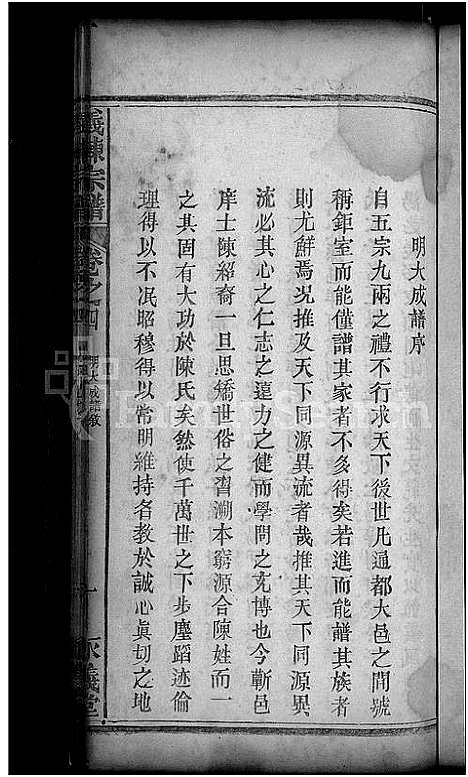 明大成譜序
自五宗九兩之禮不行求天下後世凡通都大邑之間號
稱鉅室而能僅譜其家者不多得矣若進而能譜其族者
則尤鮮焉况推及天下同源異流者哉推其天下同源異
流必其心之仁志之遠力之健而學問之充博也今蘄邑
庠士陳紹裔一旦思矯世俗之習溯本窮源合陳姓而一
之其固有大功於陳氏矣然使千萬世之下步塵蹈迹倫
理得以不泯昭穆得以常明維持名教於誠心眞切之地
義陳宗譜
卷之四
明大成譜敘
FamilySearch